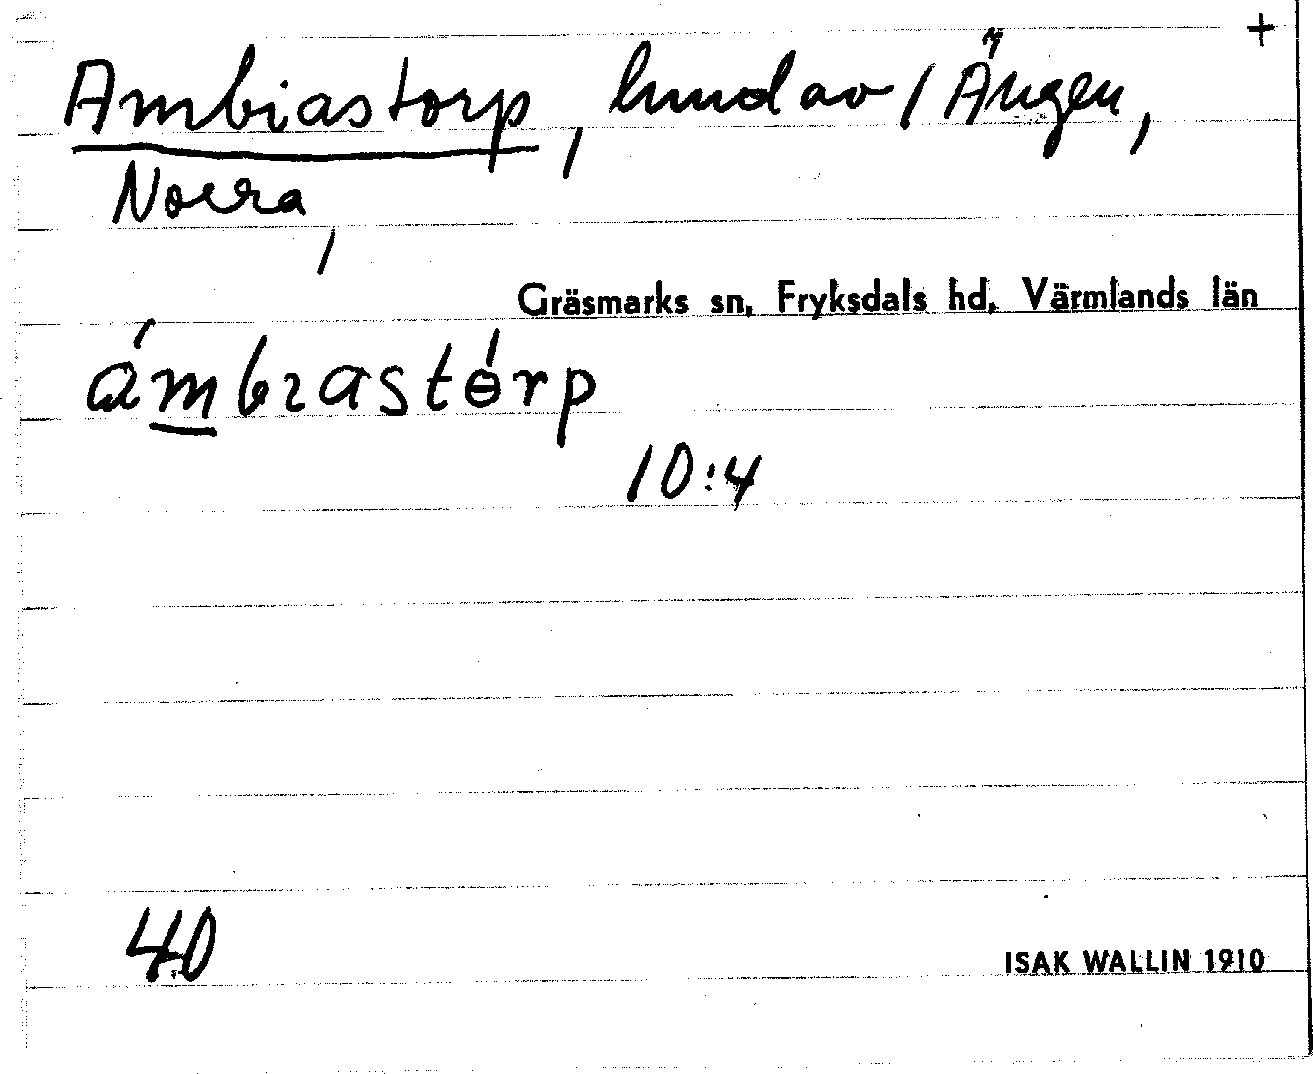 +
Ambiastorp, hmd av / Ängen,
Norra,
Gräsmarks sn, Fryksdals hd, Värmlands län
ámbɿastɵ́rp
10:4
40
ISAK WALLIN 1910